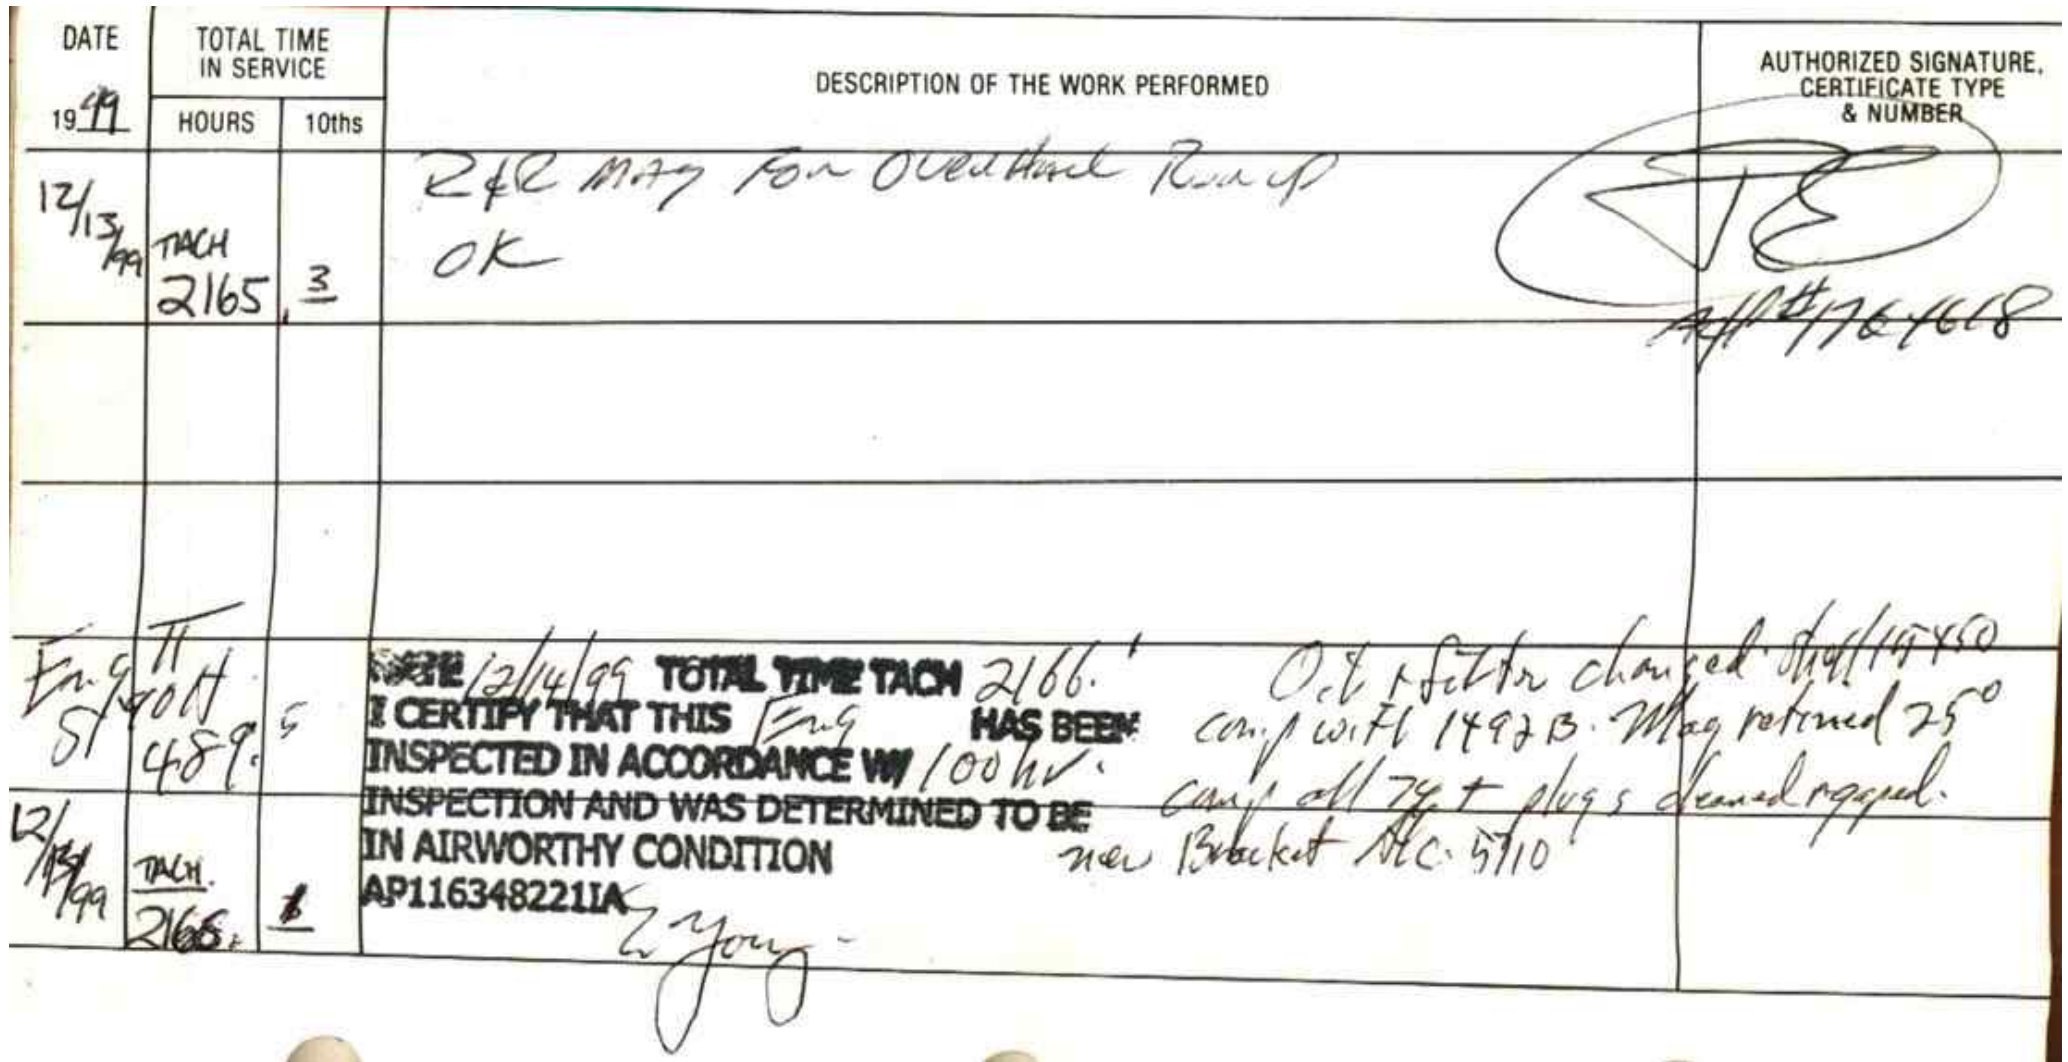 DATE
TOTAL TIME
IN SERVICE
DESCRIPTION OF THE WORK PERFORMED
AUTHORIZED SIGNATURE,
CERTIFICATE TYPE
& NUMBER
1999
HOURS
10ths
12/13/99
TACH
2165.3
R&R Mag For Overhaul Run up
OK
A/P#
Eng
TT
489.5
12/14/99 TOTAL TIME TACH 2166.1
I CERTIFY THAT THIS Eng HAS BEEN
INSPECTED IN ACCORDANCE W/ 100 hr.
INSPECTION AND WAS DETERMINED TO BE
IN AIRWORTHY CONDITION
AP116348221IA
Oil & filter changed. Shell 15W50
comp with 1492B. Mag retimed 25°
comp all + plugs cleaned regaped.
new Bracket
12/ /99
TACH.
Young